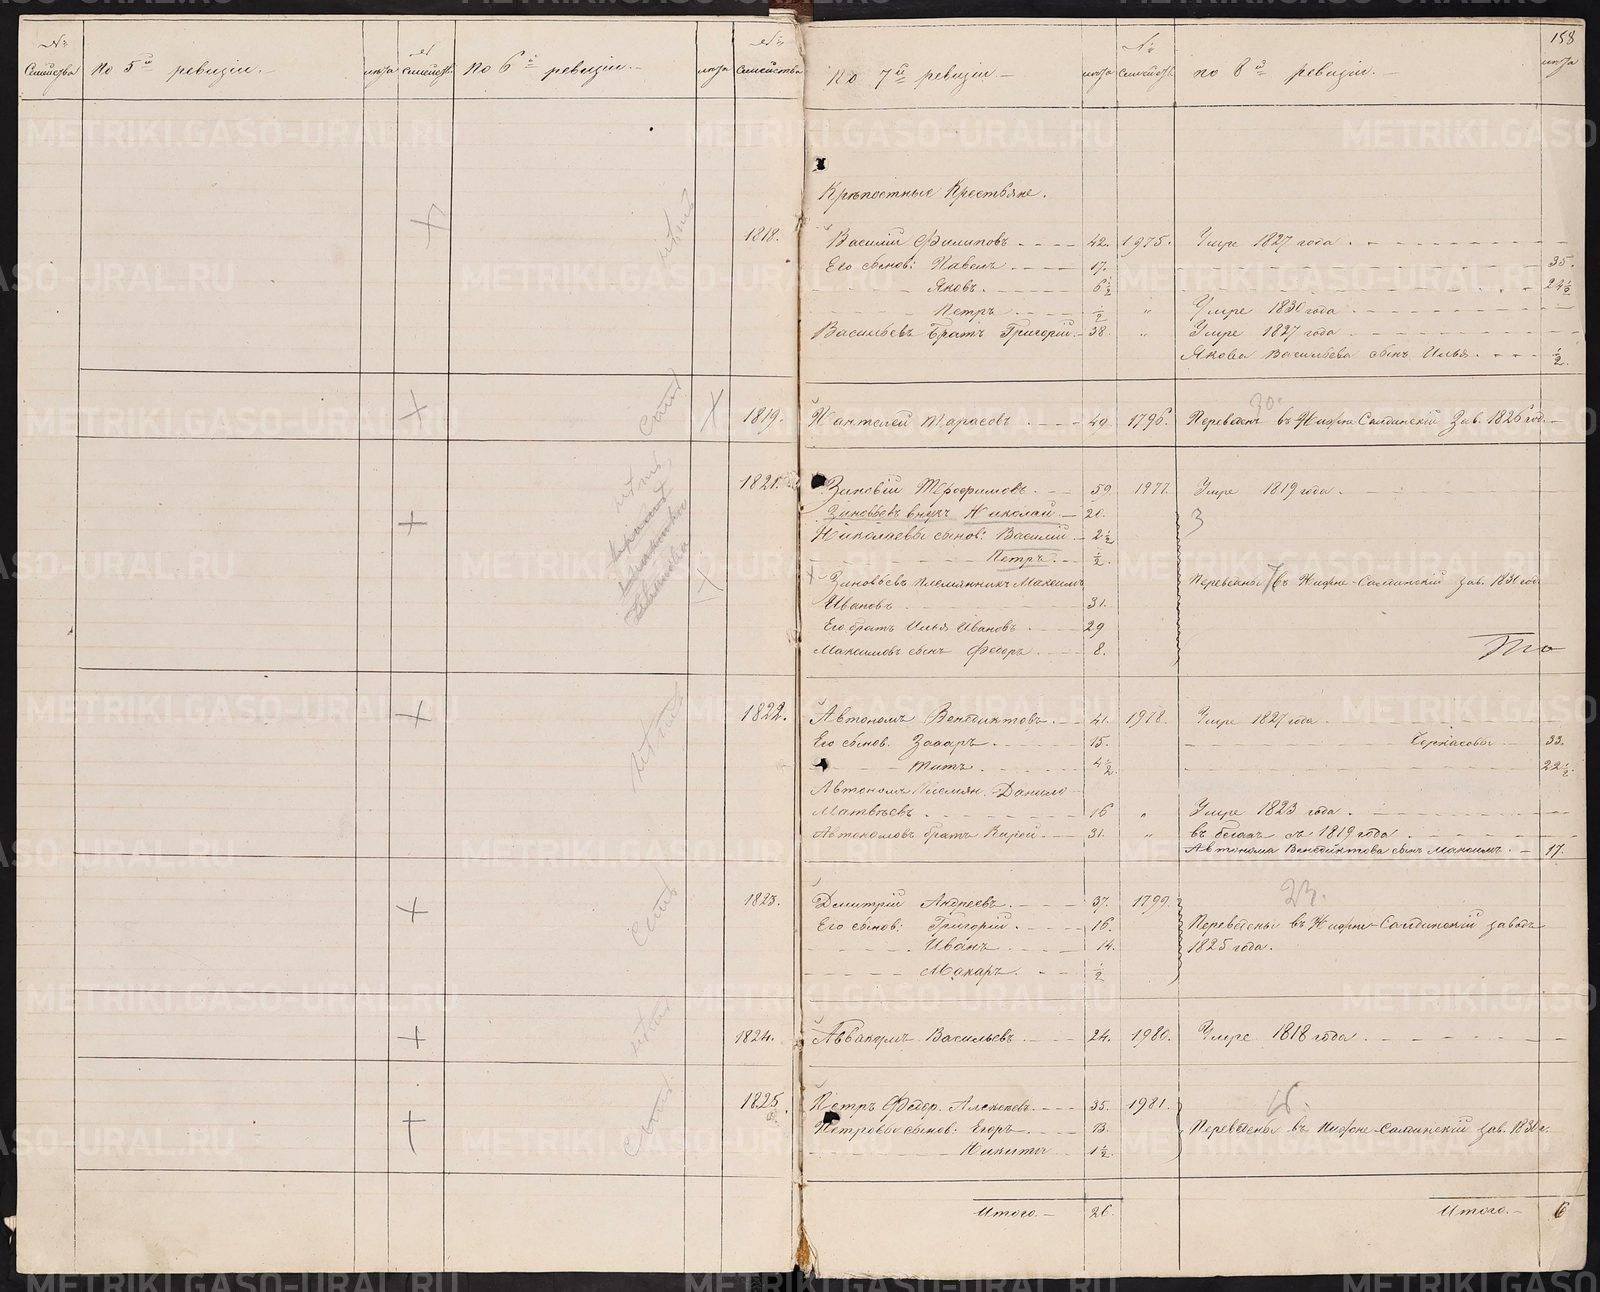 158
№ Семейства
По 5й ревизіи.—
лѣта
№ семейств
По 6й ревизіи.—
лѣта
№ Семейства
По 7й ревизіи—
лѣта
№ семейств
по 8й ревизіи.—
лѣта
Крѣпостные Крестьяне.
нѣтъ
1818. Василій Филиповъ 42. 1975. Умре 1827 года.
Его сынов: Павелъ 17. 35.
Яковъ. 6½ 24½
Петръ ½ " Умре 1830 года
Васильевъ братъ Григорій 38. " Умре 1827 года
Якова Васильева сынъ Илья ½.
Салд 30.
1819. Пантелей Тарасовъ 49. 1796. Переведенъ въ Нижне Салдинскій Зав. 1826 год.
1821. Зиновій Терофимовъ. 59. 1977. Умре 1819 года.
Зиновьевъ внукъ Николай 20. 3
Николаевы сынов: Василій 2½
Петръ ½.
Зиновьевъ племянникъ Максимъ Переведены 7 въ Нижне-Салдинскій зав. 1830 год
Ивановъ 31.
Его братъ Илья Ивановъ 29
Максимовъ сынъ Федоръ. 8.
нѣтъ
1822. Автономъ Венедиктовъ. 41. 1978. Умре 1827 года
Его сынов. Захаръ. 15. Черкасовы 33.
Титъ. 4½ 22½.
Автономъ племян. Данило
Матвѣевъ. 16 " Умре 1823 года.
Автономовъ братъ Кирей. 31. " въ бегахъ съ 1819 года
Автонома Венедиктова сынъ Максимъ. 17.
Салд 23.
1823. Дмитрій Андреевъ. 37. 1799.
Его сынов: Григорій. 16. Переведены въ Нижне-Салдинскій заводъ
Иванъ 14. 1825 года.
Макаръ. ½
нѣтъ
1824. Аввакумъ Васильевъ. 24. 1980. Умре 1818 года.
1825. Петръ Федор. Алексѣевъ. 35. 1981.
Петровы сынов: Егоръ. 13. Переведены въ Нижне-Салдинскій зав. 1830 г.
Никита 1½.
Итого.— 26. Итого.— 6
METRIKI.GASO-URAL.RU